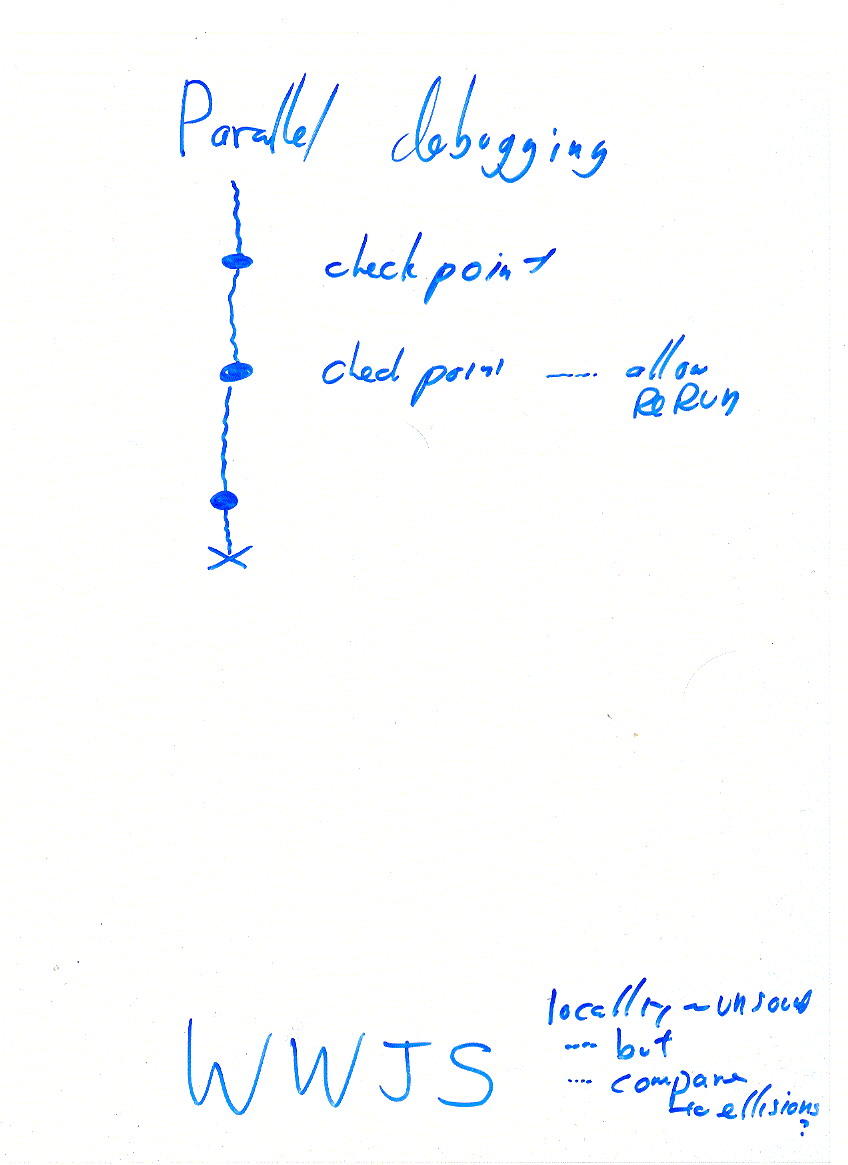 Parallel debugging
check point
check point ---- allow
ReRun
WWJS
locality ~ unsound
--- but
.... compare
ellisions
?